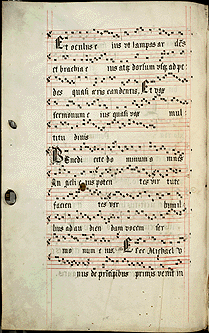 Et oculus e ius vt lampas ar des
et brachia e ius atq; dorsum vsq; ad pe
des quasi eris candentis. Et vox
sermonum e ius quasi vox mul
titu dinis
Benedi cite do minum o mnes
An geli eius poten tes vir tute
facien tes ver bum il
lius ad au dien dam vocem ser
mo num e ius Ecce Michael v
nus de principibus primis venit in